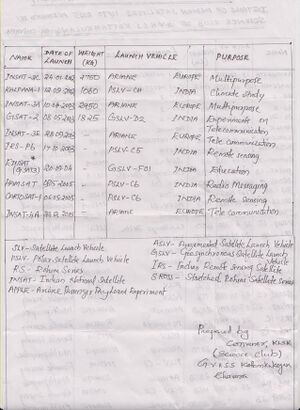 NAME DATE OF LAUNCH WEIGHT (KG) LAUNCH VEHICLE PURPOSE
INSAT-3C 24-01-2002 2750 ARIANE EUROPE Multipurpose
KALPANA-1 12-09-2002 1060 PSLV-C4 INDIA Climate Study
INSAT-3A 10-04-2003 2950 ARIANE EUROPE Multipurpose
GSAT-2 08-05-2003 1825 GSLV-D2 INDIA Experiment on Telecommunication
INSAT-3E 28-09-2003 - ARIANE EUROPE Tele communication
IRS-P6 17-10-2003 - PSLV-C5 INDIA Remote sensing
EDUSAT (GSAT3) 20-09-04 - GSLV-F01 INDIA Education
HAMSAT 2005 - PSLV-C6 INDIA Radio Messaging
CARTOSAT-1 2005 - PSLV-C6 INDIA Remote Sensing
INSAT-4A 2005 - ARIANE EUROPE Tele communication
SLV - Satellite Launch Vehicle
PSLV - Polar Satellite Launch Vehicle
RS - Rohini Series
INSAT - Indian National Satellite
APPLE - Ariane Passenger Payload Experiment
ASLV - Augmented Satellite Launch Vehicle
GSLV - Geosynchronous Satellite Launch Vehicle
IRS - Indian Remote Sensing Satellite
SROSS - Stretched Rohini Satellite Series
Prepared by
Convener,
(Science club)
G.V.H.S.S